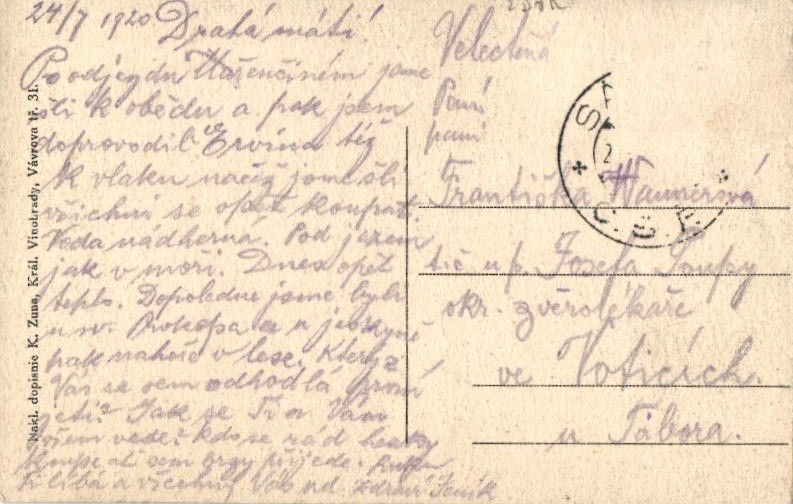 24/7 1920 Drahá máti!
Po odjezdu Mařenčiném jsme
šli k obědu a pak jsem
doprovodil Ervína též
k vlaku načež jsme šli
všichni se opět koupat.
Voda nádherná. Pod jezem
jak v moři. Dnes opět
teplo. Dopoledne jsme byli
u sv. Prokopa a u jeskyně
pak nahoře v lese. Který z
Vás se sem odhodlá první
jeti? Jak se Ti a Vám
všem vede? kdo se rád
koupe ať sem brzy přijede. Ruku
Ti líbá a všechny Vás zdraví Jeník
Velectěná
Paní
paní
Františka
tič u p. Josefa
okr. zvěrolékaře
ve Voticích.
u Tábora.
Nakl. dopisnic K. Zuna, Král. Vinohrady, Vávrova tř. 31.